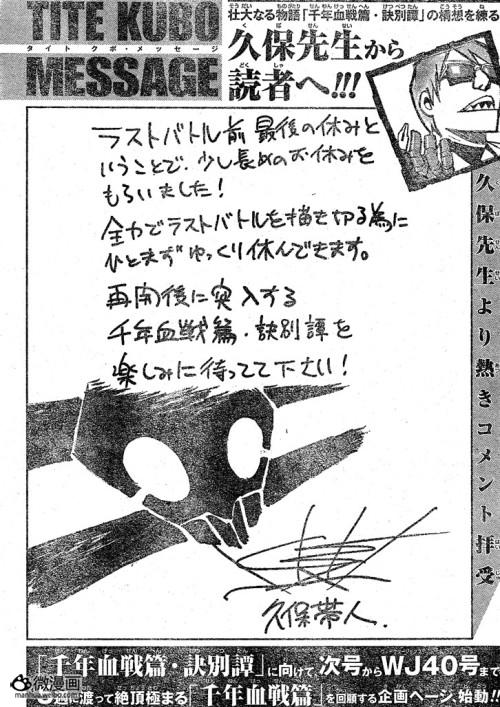 TITE KUBO
タイトクボ・メッセージ
MESSAGE
壮大なる物語「千年血戦篇・訣別譚」の構想を練る
久保先生から
読者へ!!!
ラストバトル前 最後の休みと
いうことで、少し長めのお休みを
もらいました!
全力でラストバトルを描き切る為に
ひとまずゆっくり休んできます。
再開後に突入する
千年血戦篇・訣別譚を
楽しみに待ってて下さい!
久保帯人
久保先生より熱きコメント拝受
「千年血戦篇・訣別譚」に向けて、次号からWJ40号まで
週に渡って絶頂極まる「千年血戦篇」を回顧する企画ページ、始動!!
微漫画
www.manhua.weibo.com